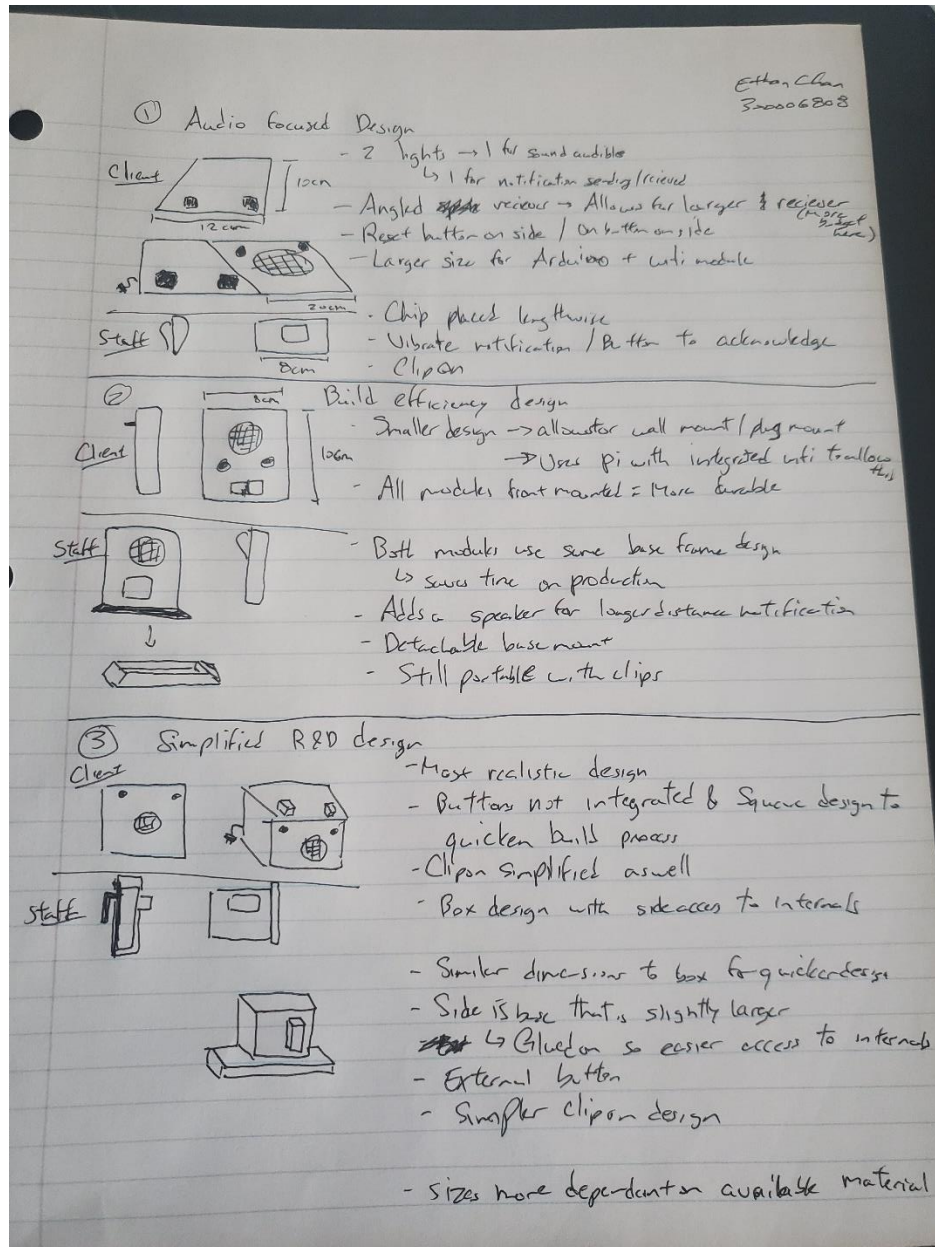 Ethan Chan
300006808
① Audio focused Design
- 2 lights → 1 for sound audible
↳ 1 for notification sending/recieved
Client
10cm
12cm
- Angled reciever → Allows for larger reciever
(more budget here)
- Reset button on side / On button on side
- Larger size for Arduino + wifi module
20cm
- Chip placed lengthwise
Staff
- Vibrate notification / Button to acknowledge
8cm
- Clip on
② Build efficiency design
8cm
- Smaller design → allows for wall mount / plug mount
Client
10cm
→ Uses pi with integrated wifi to allow this
- All modules front mounted = More durable
Staff
- Both modules use same base frame design
↳ saves time on production
- Adds a speaker for longer distance notification
- Detachable base mount
- Still portable with clips
③ Simplified R&D design
Client
- Most realistic design
- Buttons not integrated & Square design to
quicken build process
- Clip on simplified aswell
Staff
- Box design with side acces to internals
- Similar dimensions to box for quicker design
- Side is base that is slightly larger
↳ Glued on so easier access to internals
- External button
- Simpler clip on design
- sizes more dependant on available material